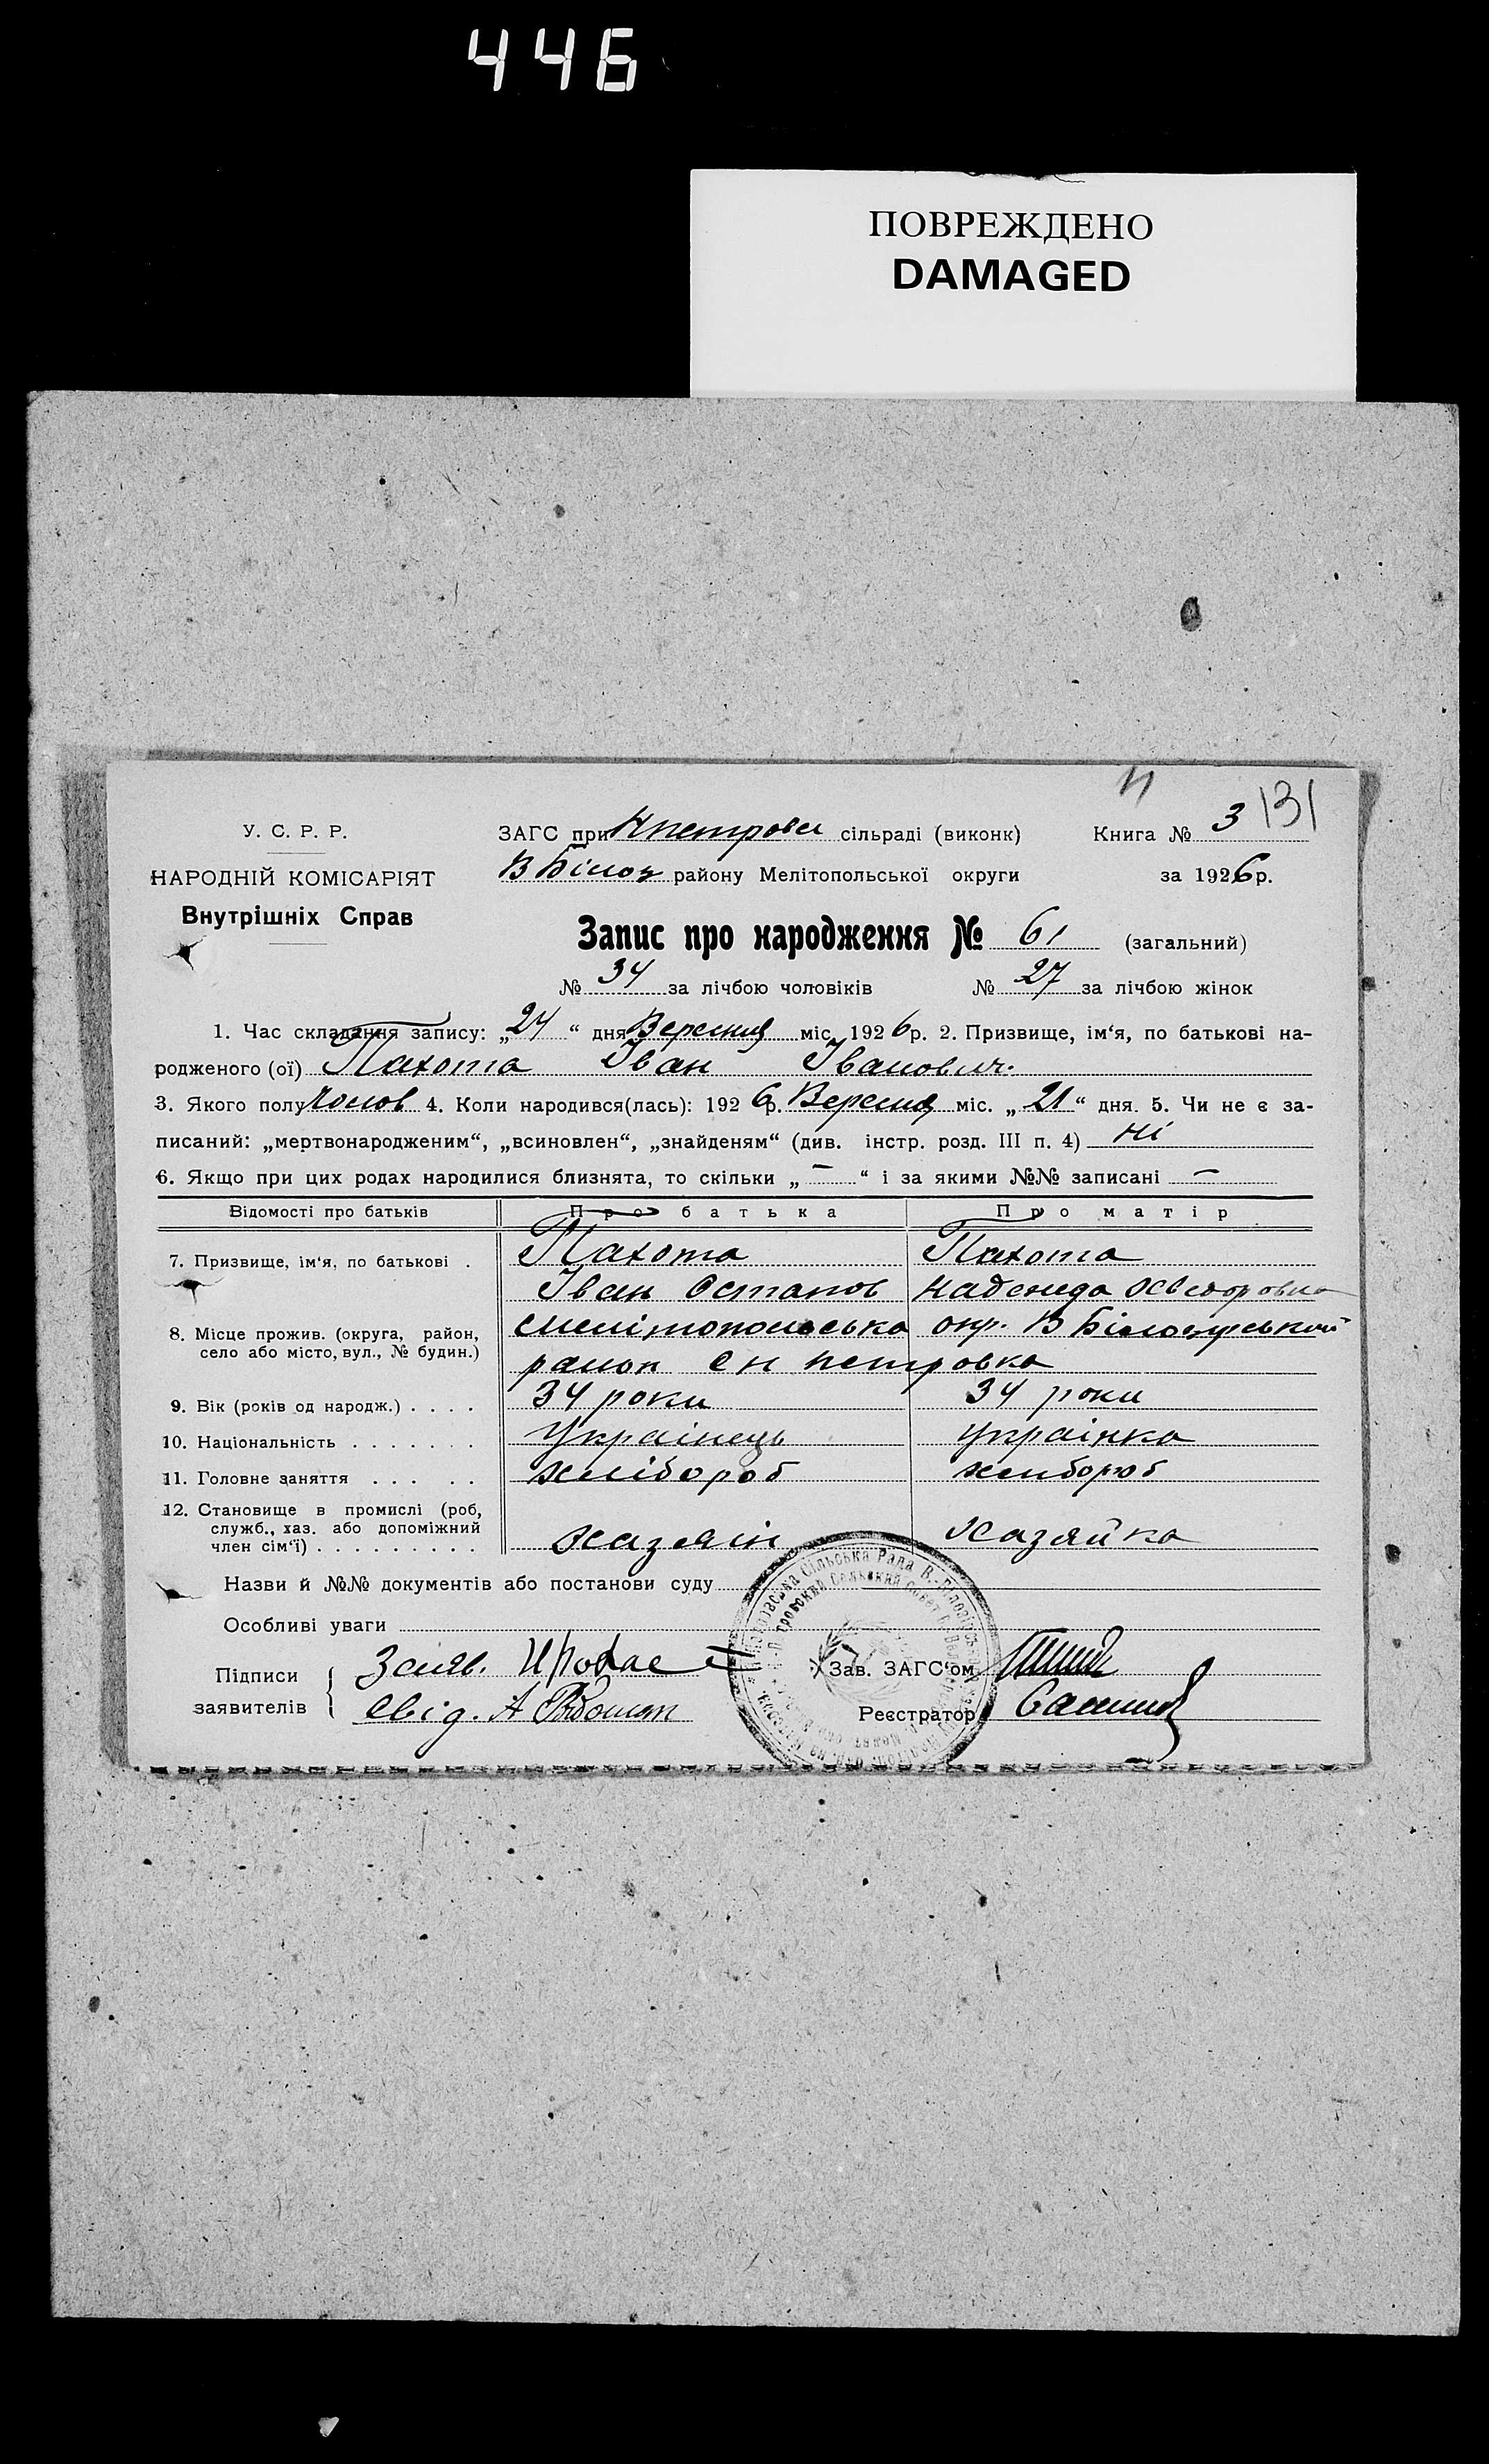 446
ПОВРЕЖДЕНО
DAMAGED
131
У. С. Р. Р.
ЗАГС при Нпетрова сільраді (виконк)
Книга № 3
НАРОДНІЙ КОМІСАРІЯТ
В Білоз району Мелітопольської округи
за 1926 р.
Внутрішніх Справ
Запис про народження № 61 (загальний)
№ 34 за лічбою чоловіків № 27 за лічбою жінок
1. Час складання запису: „24“ дня Вересня міс. 1926 р. 2. Призвище, ім‘я, по батькові на-
родженого (ої) Пахота Іван Іванович.
3. Якого полу Чолов 4. Коли народився(лась): 1926 р. Вересня міс. „21“ дня. 5. Чи не є за-
писаний: „мертвонародженим“, „всиновлен“, „знайденям“ (див. інстр. розд. III п. 4) Ні
6. Якщо при цих родах народилися близнята, то скільки „ — “ і за якими №№ записані —
Відомості про батьків Про батька Про матір
7. Призвище, ім‘я, по батькові . Пахота Пахота
Іван Остапов Надежда
8. Місце прожив. (округа, район, Мелітопольська окр. В Білозурськой
село або місто, вул., № будин.)
район с Н петровка
9. Вік (років од народж.) . . . . 34 роки 34 роки
10. Національність . . . . . . . Українець Українка
11. Головне заняття . . . . . хлібороб хлибороб
12. Становище в промислі (роб,
служб., хаз. або допоміжний
член сім‘ї) . . . . . . . . . хазяін хазяйка
Назви й №№ документів або постанови суду
Особливі уваги
Підписи
заявителів
Заяв.
Свід. А
Сільська Рада
Зав. ЗАГС‘ом
Реєстратор